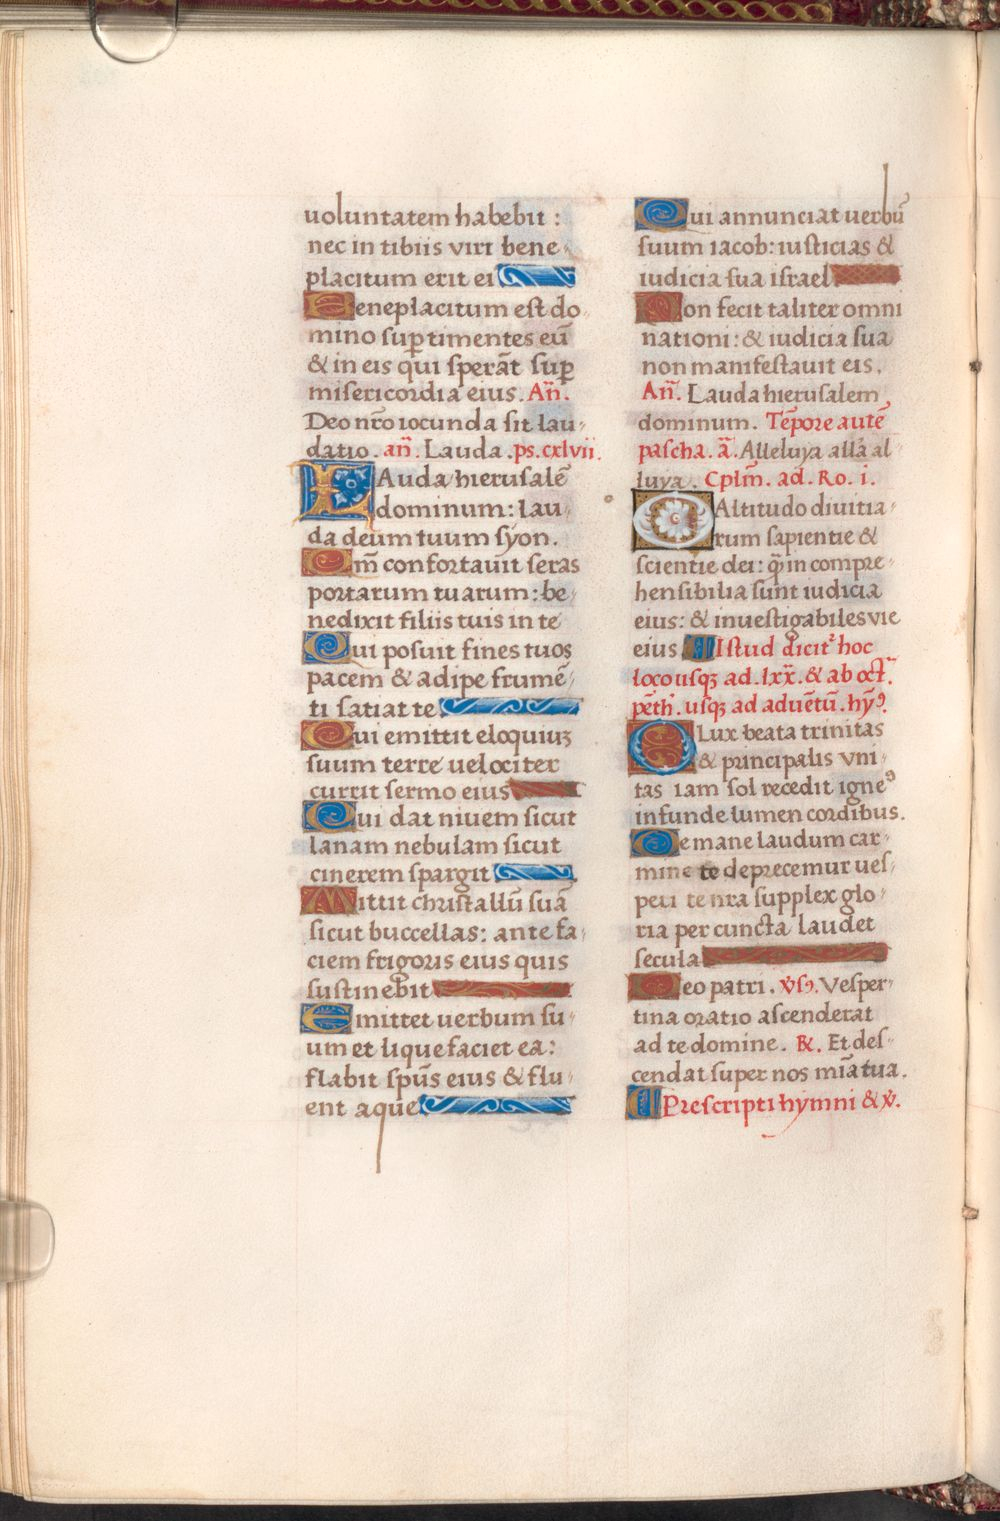 uoluntatem habebit :
nec in tibiis viri bene
placitum erit ei
Beneplacitum est do
mino sup timentes eū
& in eis qui sperāt sup
misericordia eius. Añ.
Deo nr̄o iocunda sit lau
datio. añ. Lauda. ps. cxlvii.
LAuda hierusalē
dominum: lau
da deum tuum syon.
Qm̄ confortauit seras
portarum tuarum: be
nedixit filiis tuis in te
Qui posuit fines tuos
pacem & adipe frumē
ti satiat te
Qui emittit eloquiuȝ
suum terre uelociter
currit sermo eius
Qui dat niuem sicut
lanam nebulam sicut
cinerem spargit
Mittit christallū suā
sicut buccellas: ante fa
ciem frigoris eius quis
sustinebit
Emittet uerbum su
um et liquefaciet ea:
flabit spūs eius & flu
ent aque
Qui annunciat uerbū
suum iacob: iusticias &
iudicia sua israel
Non fecit taliter omni
nationi: & iudicia sua
non manifestauit eis.
Añ. Lauda hierusalem
dominum. Tēpore autē
pascha. ā. Alleluya allā al
luya. Cplm̄. ad. Ro. i.
O Altitudo diuitia
rum sapientie &
scientie dei: q̄ incompre
hensibilia sunt iudicia
eius: & inuestigabiles vie
eius Istud dicit² hoc
loco usqȝ ad. lxx̄. & ab oct̄.
pēth. usqȝ ad aduētū. hy⁹.
O Lux beata trinitas
& principalis vni
tas iam sol recedit igne⁹
infunde lumen cordibus.
Te mane laudum car
mine te deprecemur ues
peri te nr̄a supplex glo
ria per cuncta laudet
secula
Deo patri. v̄s⁹. Vesper
tina oratio ascenderat
ad te domine. ℟. Et des
cendat super nos mīa tua.
Prescripti hymni & v̄.